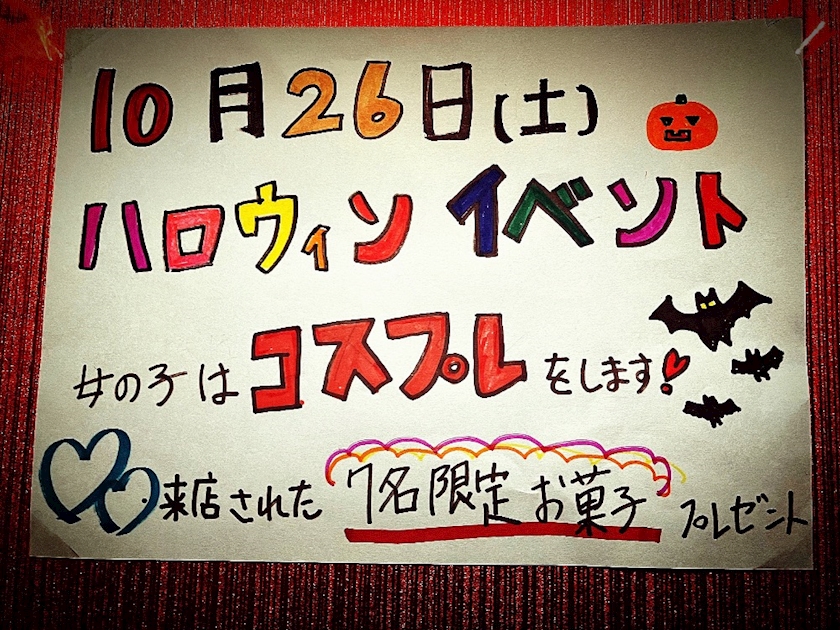 10月26日(土)
ハロウィンイベント
女の子はコスプレをします!
来店された7名限定お菓子プレゼント